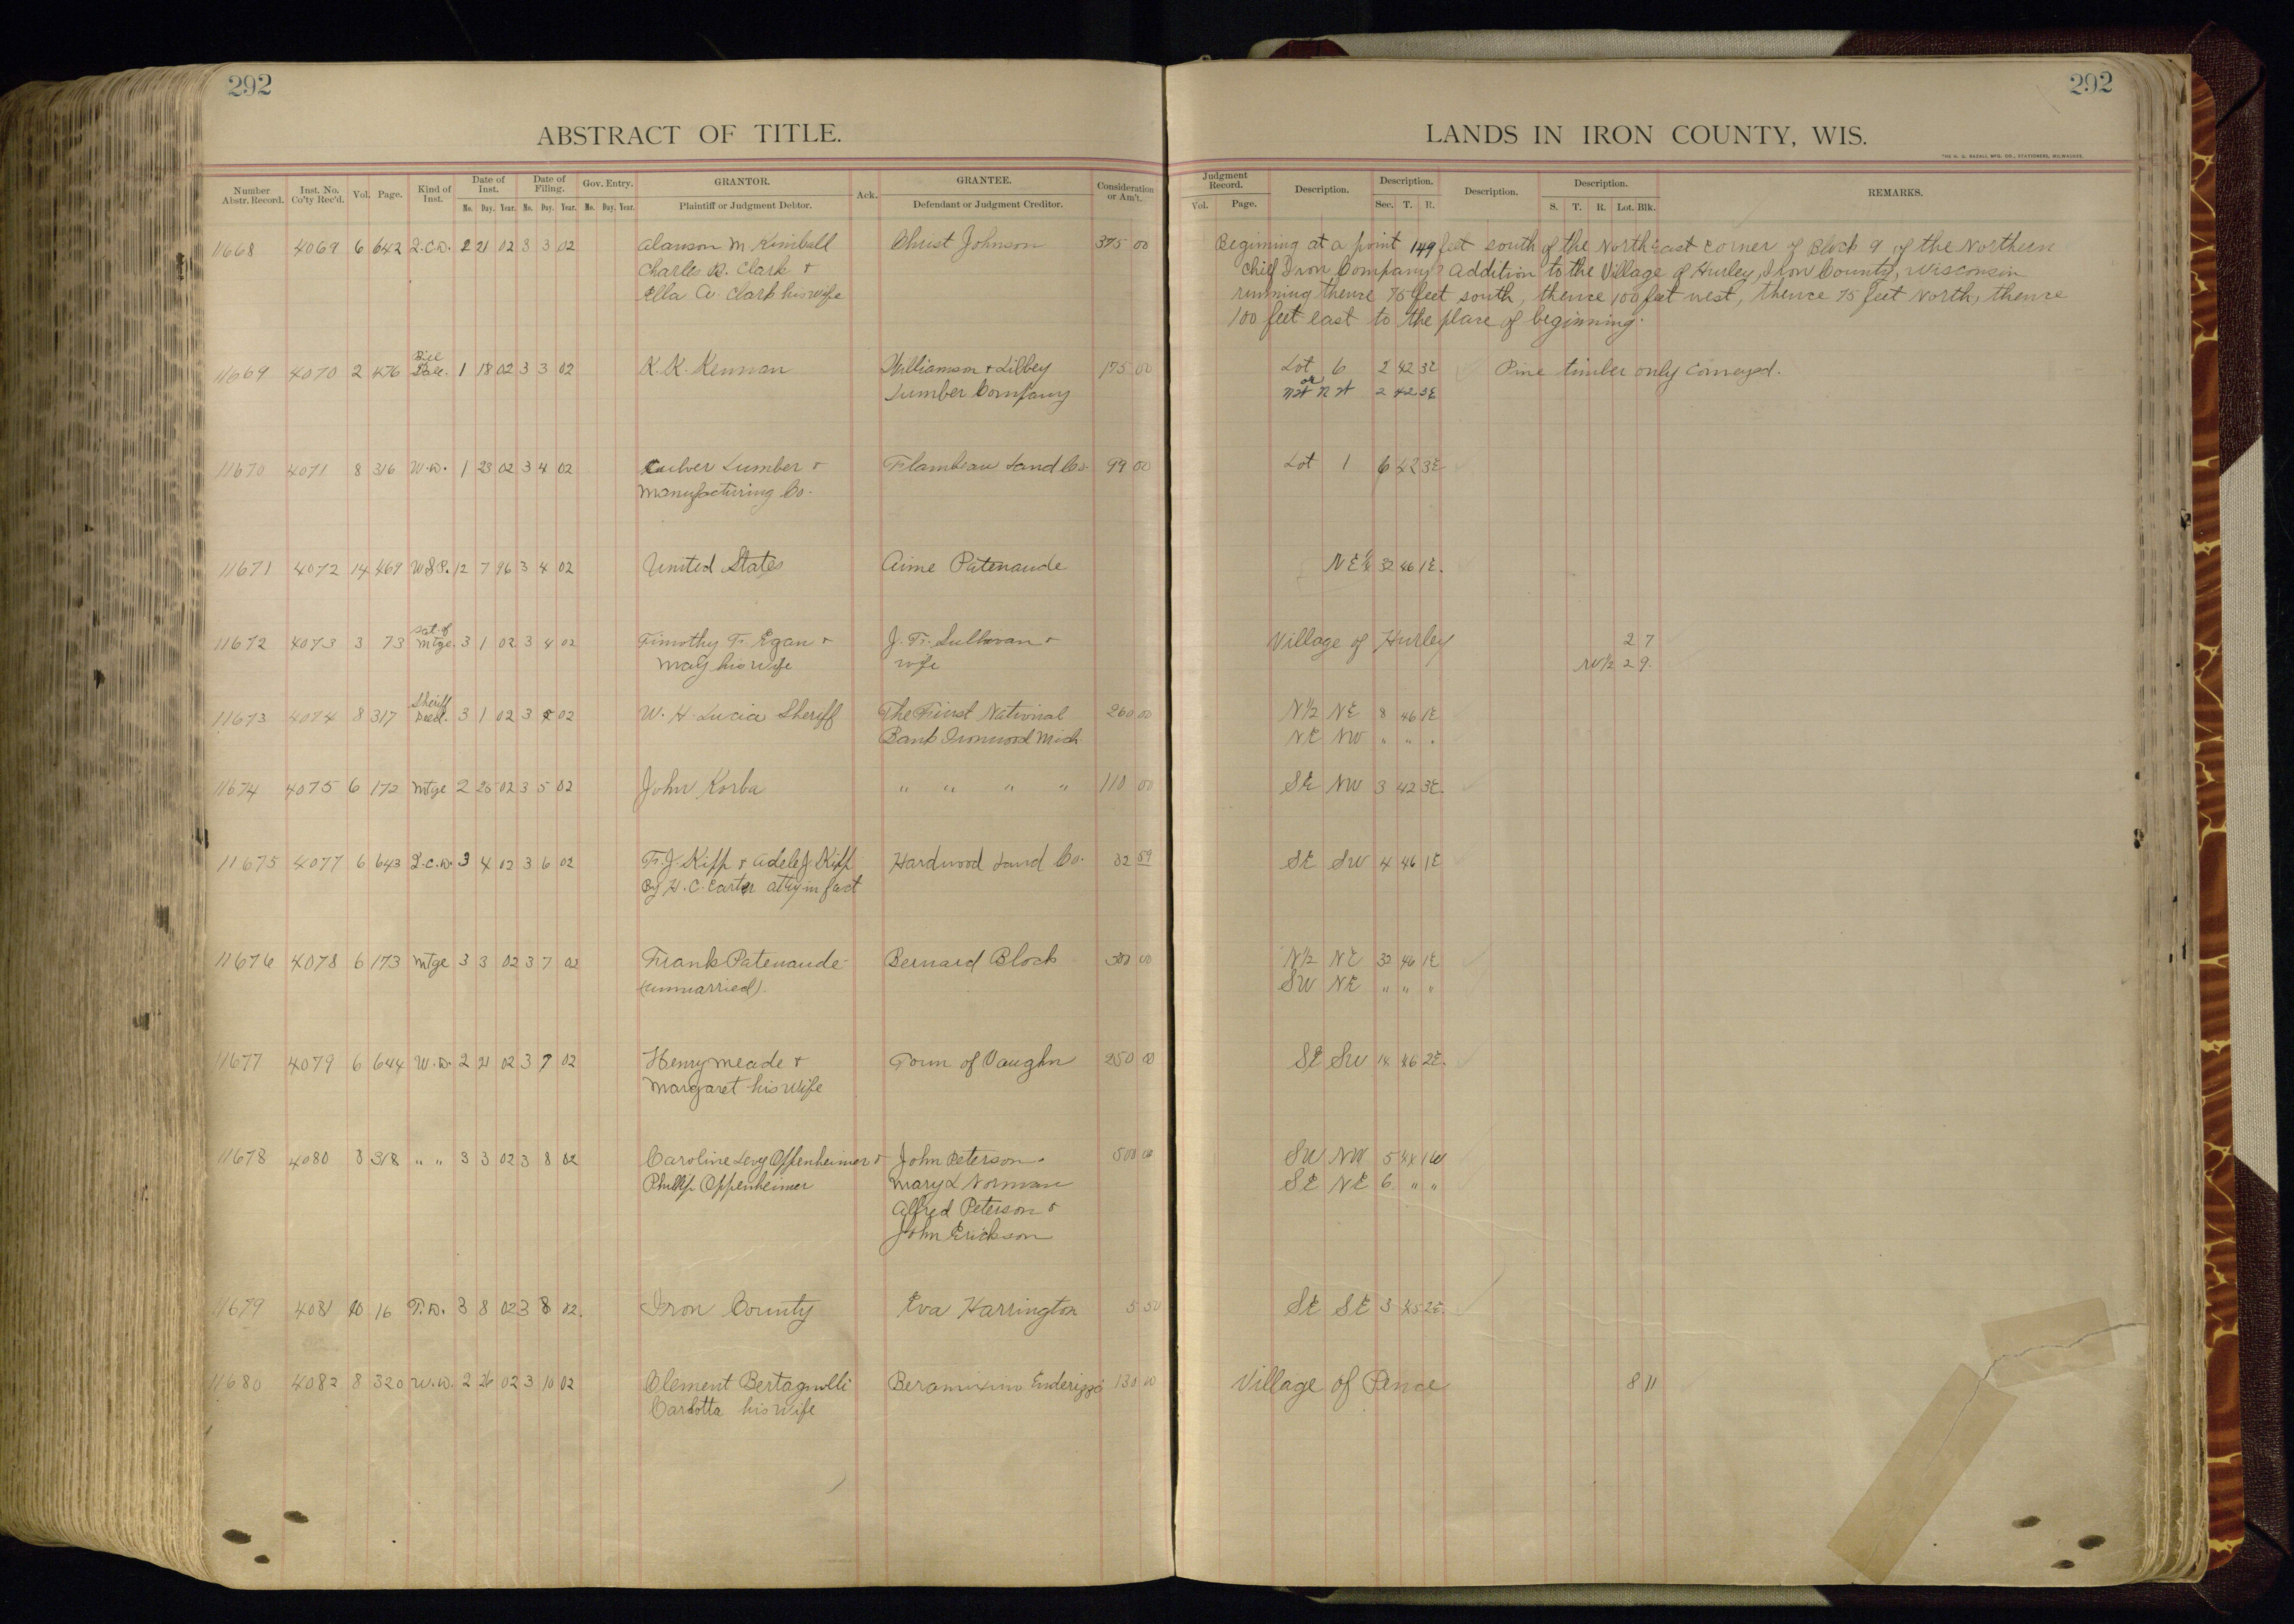 292
292
ABSTRACT OF TITLE.
LANDS IN IRON COUNTY, WIS.
THE H. G. RAZALL MFG. CO., STATIONERS, MILWAUKEE.
Number Abstr. Record. Inst. No. Co'ty Rec'd. Vol. Page. Kind of Inst. Date of Inst. Date of Filing. Gov. Entry. GRANTOR. Ack. GRANTEE. Consideration or Am't. Judgment Record. Description. Description. Description. Description. REMARKS.
Mo. Day. Year. Mo. Day. Year. Mo. Day. Year. Plaintiff or Judgment Debtor. Defendant or Judgment Creditor. Vol. Page. Sec. T. R. S. T. R. Lot. Blk.
11668 4069 6 642 Q.C.D. 2 21 02 3 3 02 Alanson M Kimball Christ Johnson 375 00 Beginning at a point 149 feet south of the NorthEast Corner of Block 9 of the Northern
Charles B. Clark & Chief Iron Companys Addition to the Village of Hurley, Iron County, Wisconsin
Ella A. Clark his wife running thence 75 feet south, thence 100 feet west, thence 75 feet North, thence
100 feet east to the place of beginning.
11669 4070 2 476 Bill Sale. 1 18 02 3 3 02 K. K. Kennan Williamson & Libbey 175 00 Lot 6 2 42 3E Pine timber only Conveyed.
Lumber Company or 2 42 3E
11670 4071 8 316 W.D. 1 23 02 3 4 02 Culver Lumber & Flambeau Land Co. 99 00 Lot 1 6 42 3E
Manufacturing Co.
11671 4072 14 469 12 7 96 3 4 02 United States Aime Patenaude NE¼ 32 46 1E.
11672 4073 3 73 Sat. of Mtge. 3 1 02 3 4 02 Timothy F. Egan & J. F. Sullivan & Village of Hurley 2 7
his wife wife 2 9.
11673 4074 8 317 Sheriff Deed. 3 1 02 3 5 02 W. H. Lucia Sheriff The First National 260 00 N½ NE 8 46 1E
Bank Ironwood Mich NE NW " " "
11674 4075 6 172 Mtge 2 25 02 3 5 02 John Korba " " " " 110 00 SE NW 3 42 3E.
11675 4077 6 643 Q.C.D. 3 4 02 3 6 02 F. J. Kipp & Adele J. Kipp Hardwood Land Co. 32 59 SE SW 4 46 1E
By H. C. Carter atty in fact
11676 4078 6 173 Mtge 3 3 02 3 7 02 Frank Patenaude Bernard Block 300 00 N½ NE 32 46 1E
(unmarried). SW NE " " "
11677 4079 6 644 W.D. 2 21 02 3 7 02 Henry Meade & Town of Vaughn 250 00 SE SW 14 46 2E.
Margaret his wife
11678 4080 8 318 " " 3 3 02 3 8 02 Caroline Levy Oppenheimer & John Peterson 500 00 SW NW 5 44 1W
Phillip Oppenheimer Mary L Norman SE NE 6 " "
Alfred Peterson &
John Erickson
11679 4081 10 16 T.D. 3 8 02 3 8 02. Iron County Eva Harrington 5 50 SE SE 3 45 2E.
11680 4082 8 320 W.D. 2 26 02 3 10 02 Clement Bertagnolli 130 00 Village of Pence 8 11
Carlotta his wife